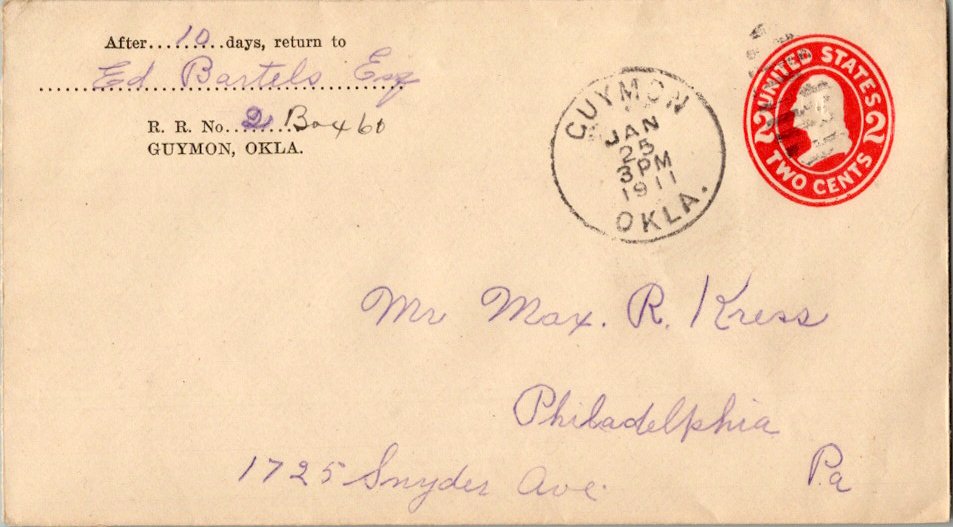 After....10....days, return to
Ed Bartels Esq
R. R. No....2 Box 60
GUYMON, OKLA.
GUYMON
JAN
25
3PM
1911
OKLA.
UNITED STATES
2 2
TWO CENTS
Mr Max. R. Kress
Philadelphia
1725 Snyder Ave. Pa